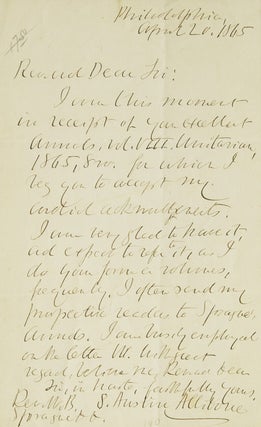 Philadelphia,
April 20. 1865
Rev. and Dear Sir:
I am this moment
in receipt of your excellent
Annals, vol. VIII. Unitarian,
1865, 8vo. for which I
beg you to accept my
cordial acknowledgments.
I am very glad to have it,
and expect to refer to it, as I
do your former volumes,
frequently. I often send my
prospective readers to Sprague's
Annals. I am busily employed
on the letter M. With great
regard, believe me, Rev. and dear
Sir, in haste, faithfully yours,
Rev. W. B. S. Austin Allibone
Sprague